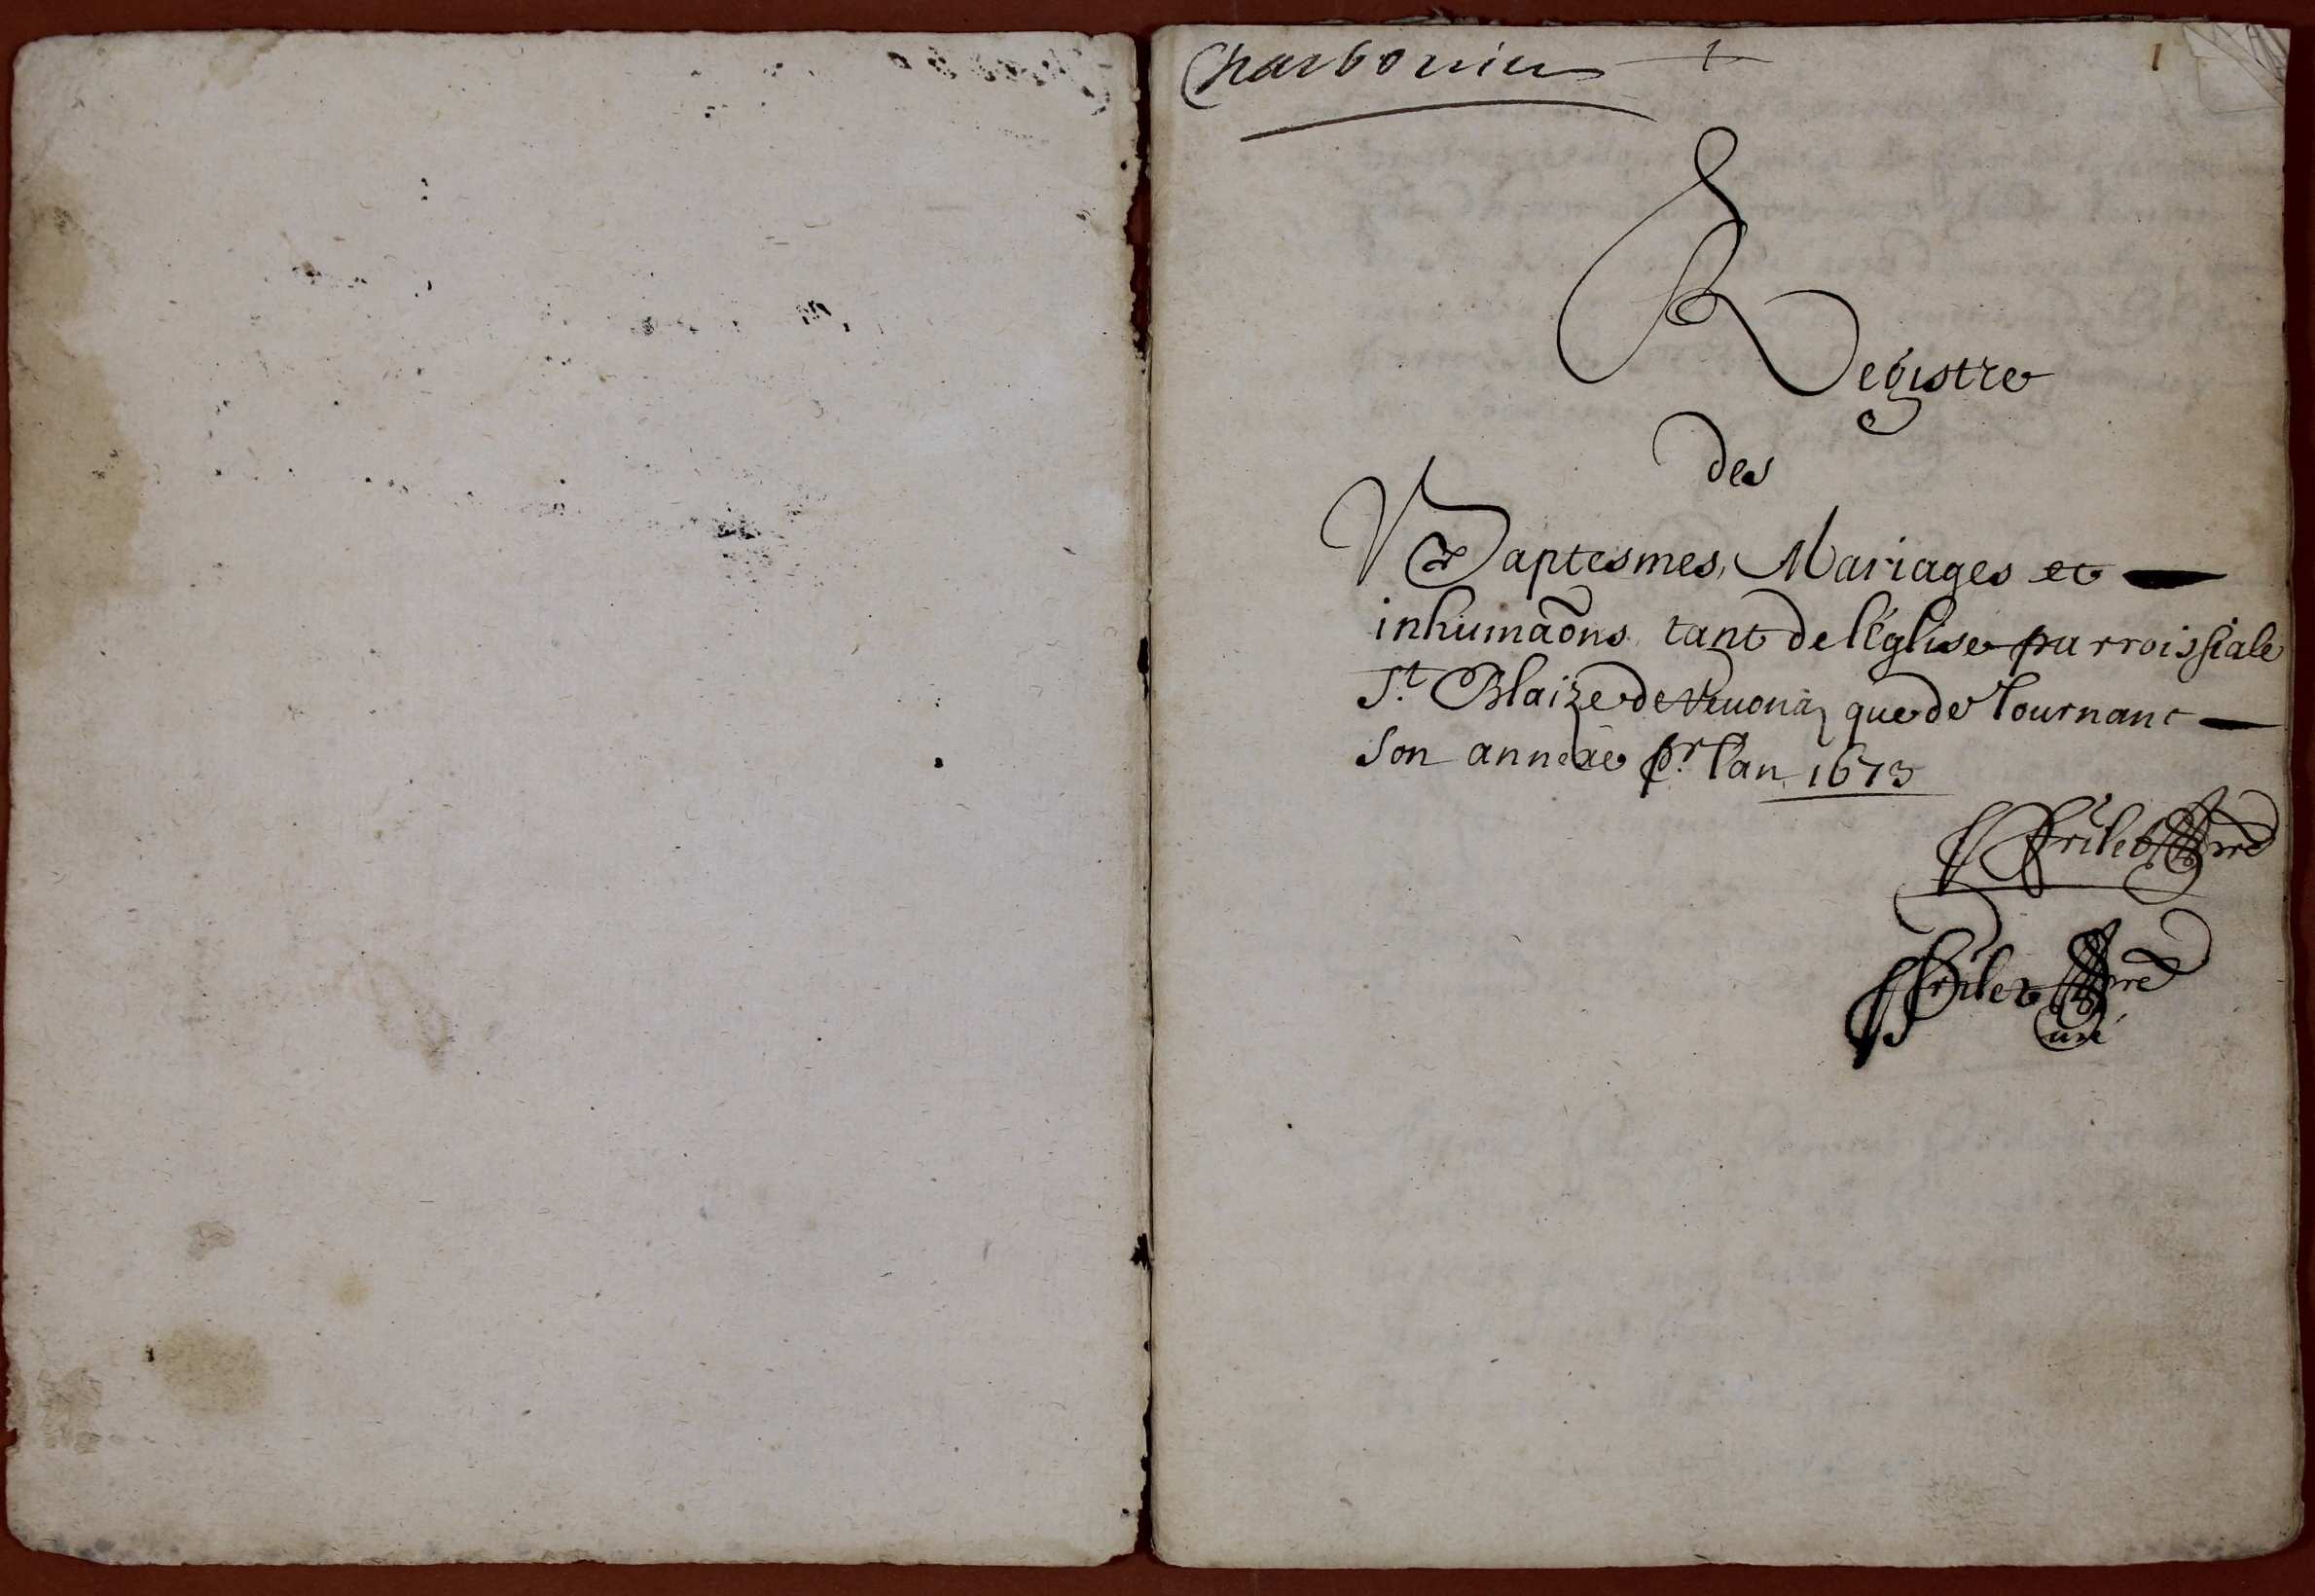 Charbonnier 1
1
Registre
des
Baptesmes, Mariages et
inhumaõns tant de l'Église parroissiale
St. Blaize de que de Tournant
son annexe pr. l'an 1673
pre
pre
Curé